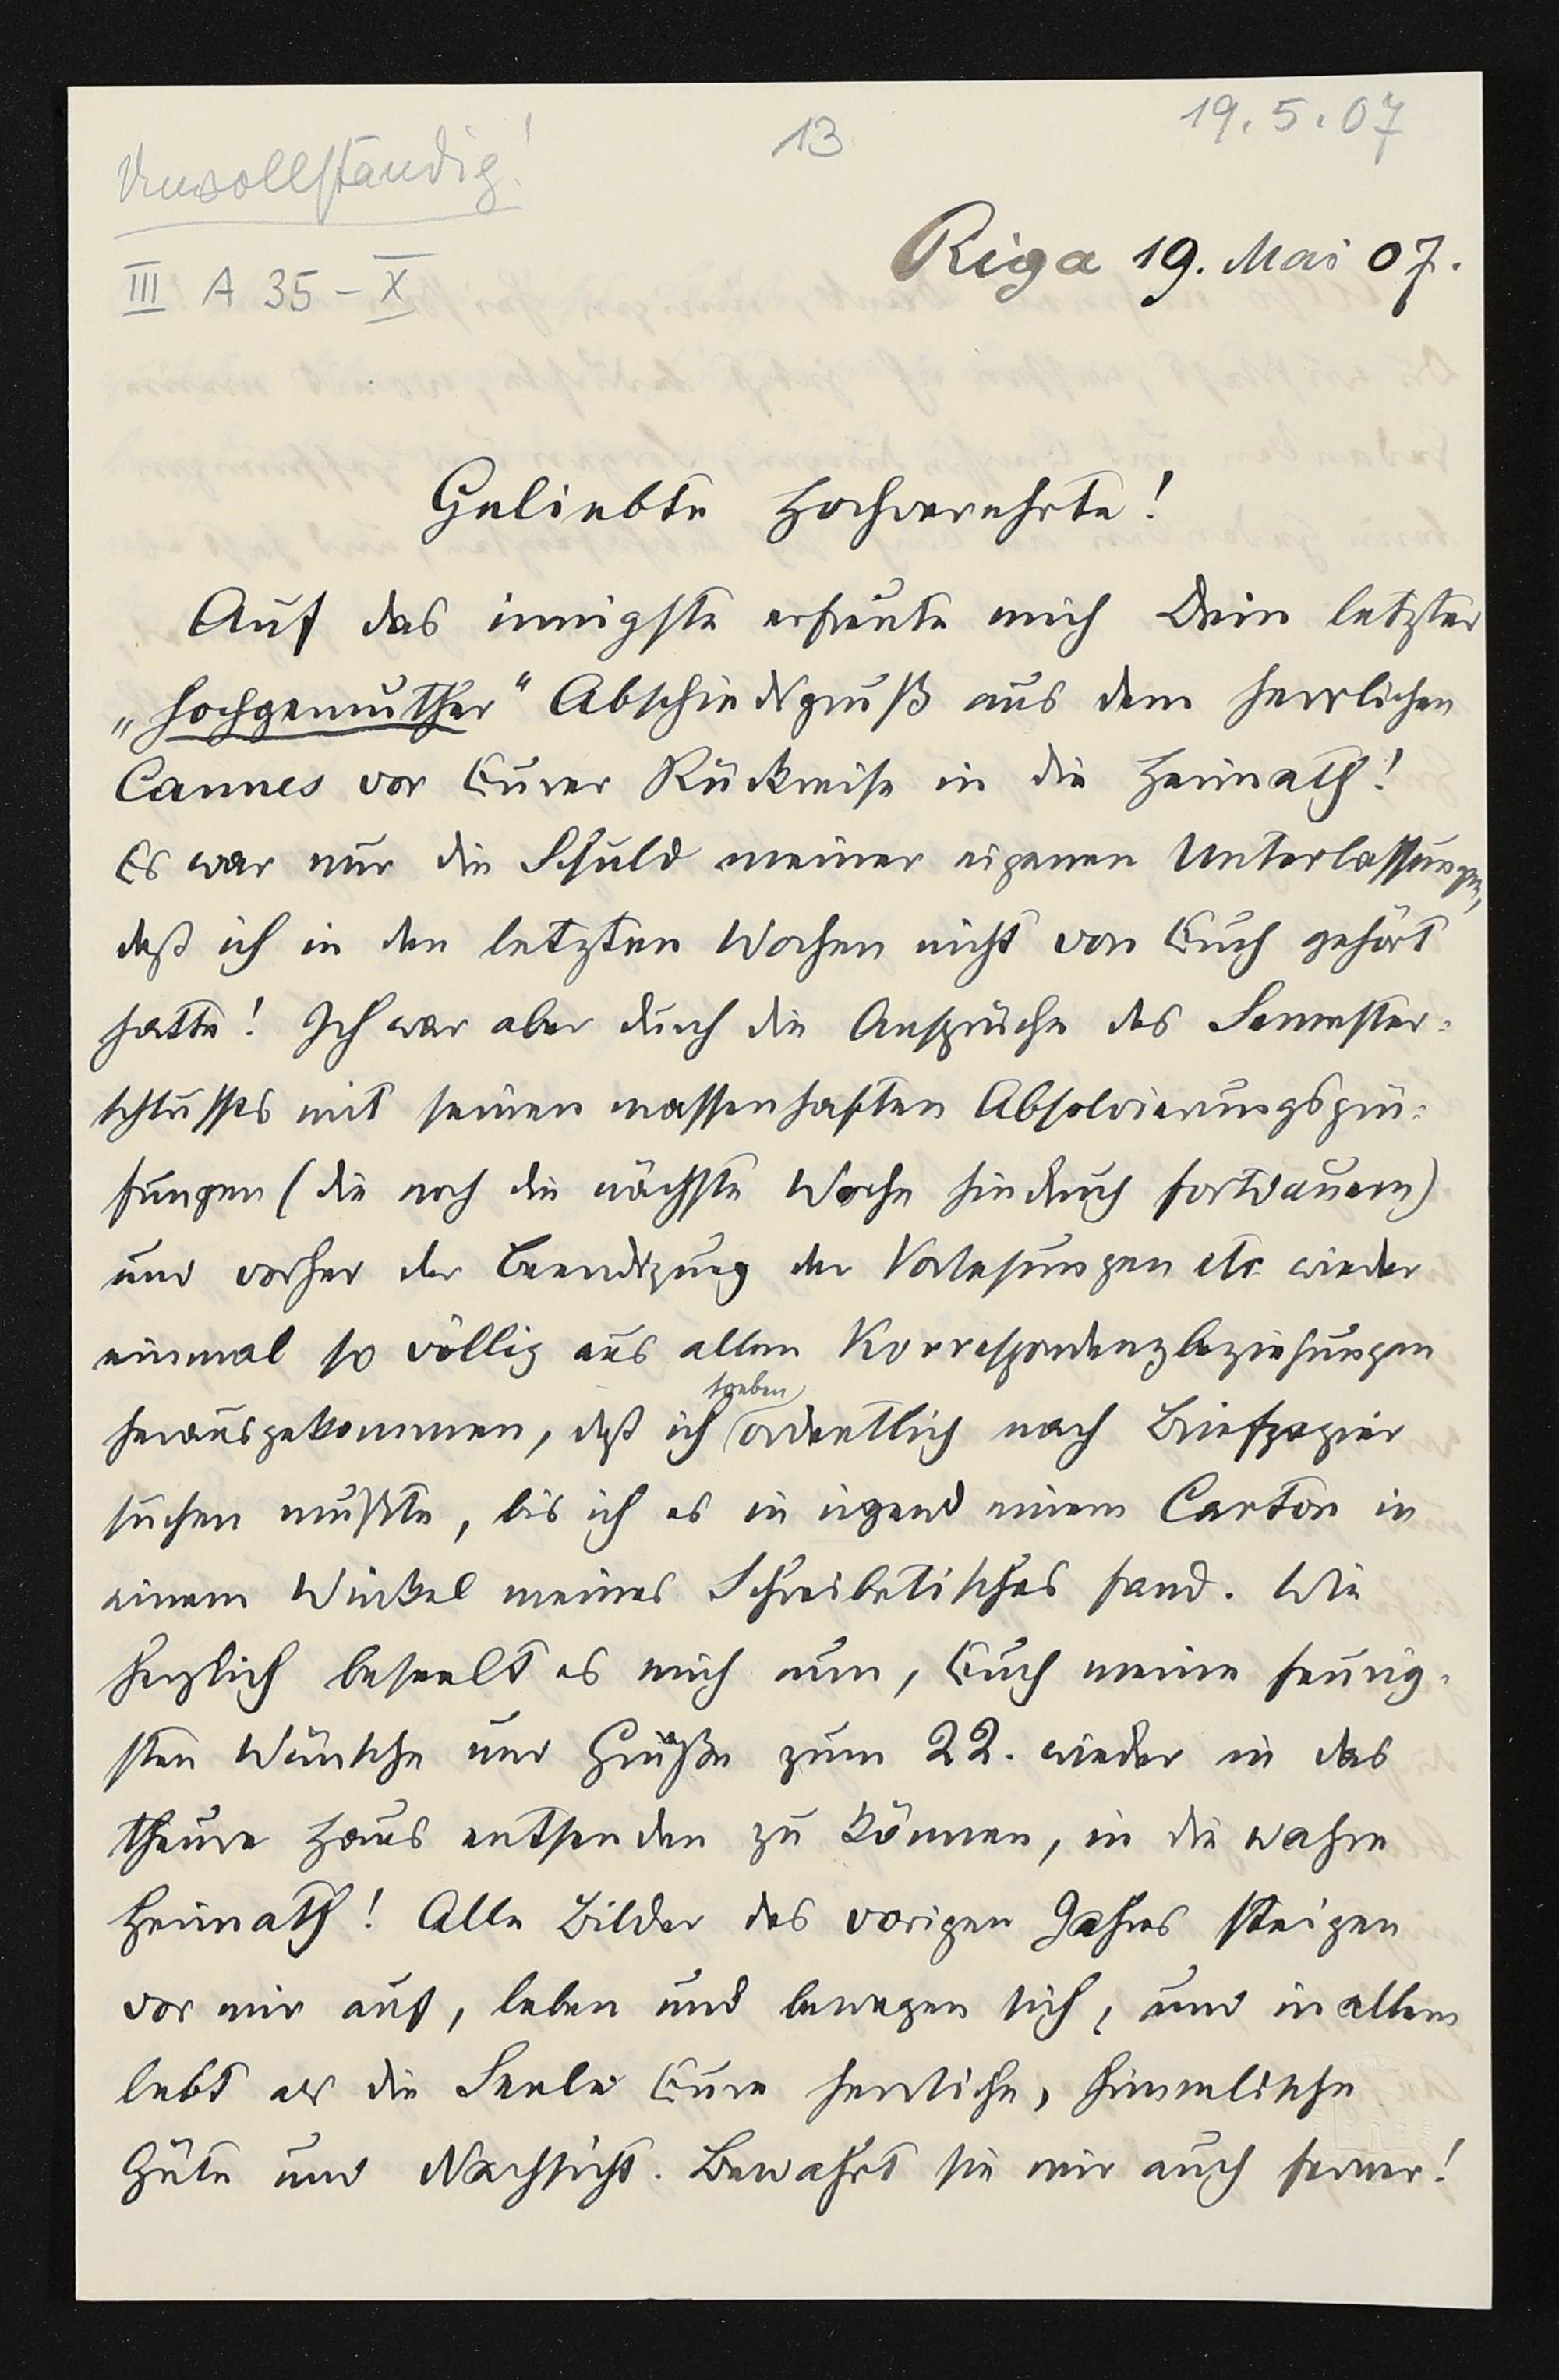 19.5.07
13
Unvollständig!
III A 35 – X
Riga 19. Mai 07.
Geliebte Hochverehrte!
Auf das innigste erfreute mich Dein letzter
„hochgemuther“ Abschiedsgruß aus dem herrlichen
Cannes vor Eurer Rückreise in die Heimath!
Es war nur die Schuld meiner eigenen Unterlassungen,
daß ich in den letzten Wochen nicht von Euch gehört
hatte! Ich war aber durch die Ansprüche des Semester-
schlusses mit seinen massenhaften Absolvierungsprü-
fungen (die noch die nächste Woche hindurch fortdauern)
und vorher der Beendigung der Vorlesungen etc wieder
einmal so völlig aus allen Korrespondenzbeziehungen
soeben
herausgekommen, daß ich ordentlich nach Briefpapier
suchen mußte, bis ich es in irgend einem Carton in
einem Winkel meines Schreibetisches fand. Wie
herzlich beseelt es mich nun, Euch meine feurig-
sten Wünsche und Grüße zum 22. wieder in das
theure Haus entsenden zu können, in die wahre
Heimath! Alle Bilder des vorigen Jahres steigen
vor mir auf, leben und bewegen sich, und in allem
lebt als die Seele Eure herrliche, himmlische
Güte und Nachsicht. Bewahrt sie mir auch ferner!